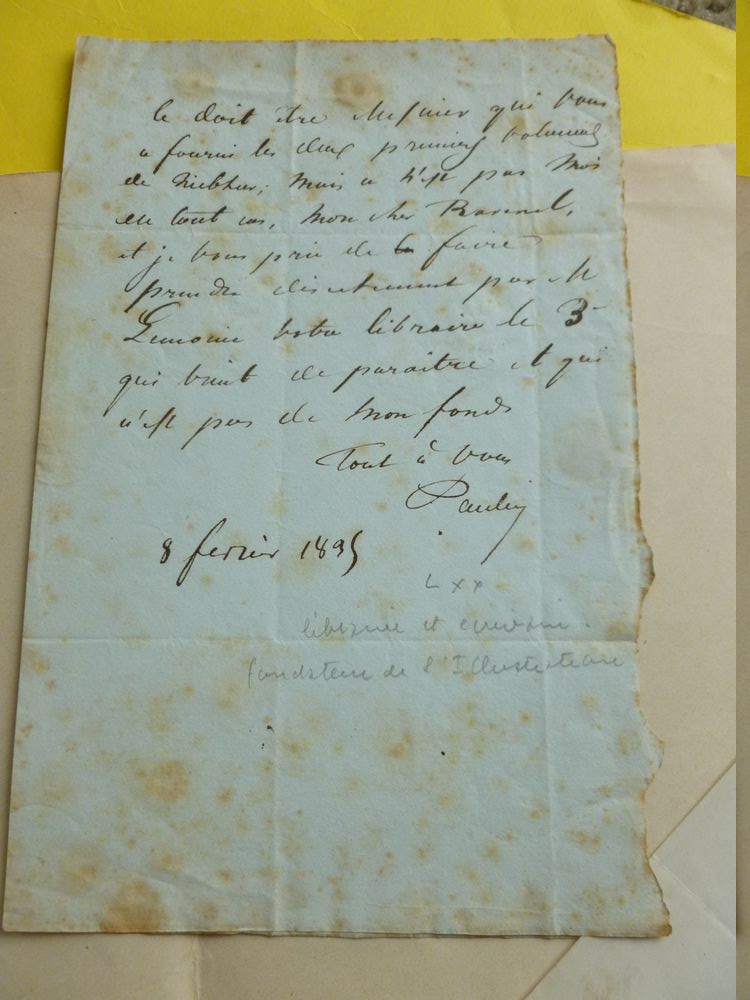 Ce doit être Mesnier qui vous
a fourni les deux premiers volumes
de Niebhur, mais ce n'est pas moi
en tout cas, mon cher Ravenel,
et je vous prie de le faire
prendre directement par M
Lemoine votre libraire le 3e
qui vient de paraître et qui
n'est pas de mon fonds
Tout à vous
Paulin
8 fevrier 1835
L x x
libraire et écrivain.
fondateur de l'Illustration